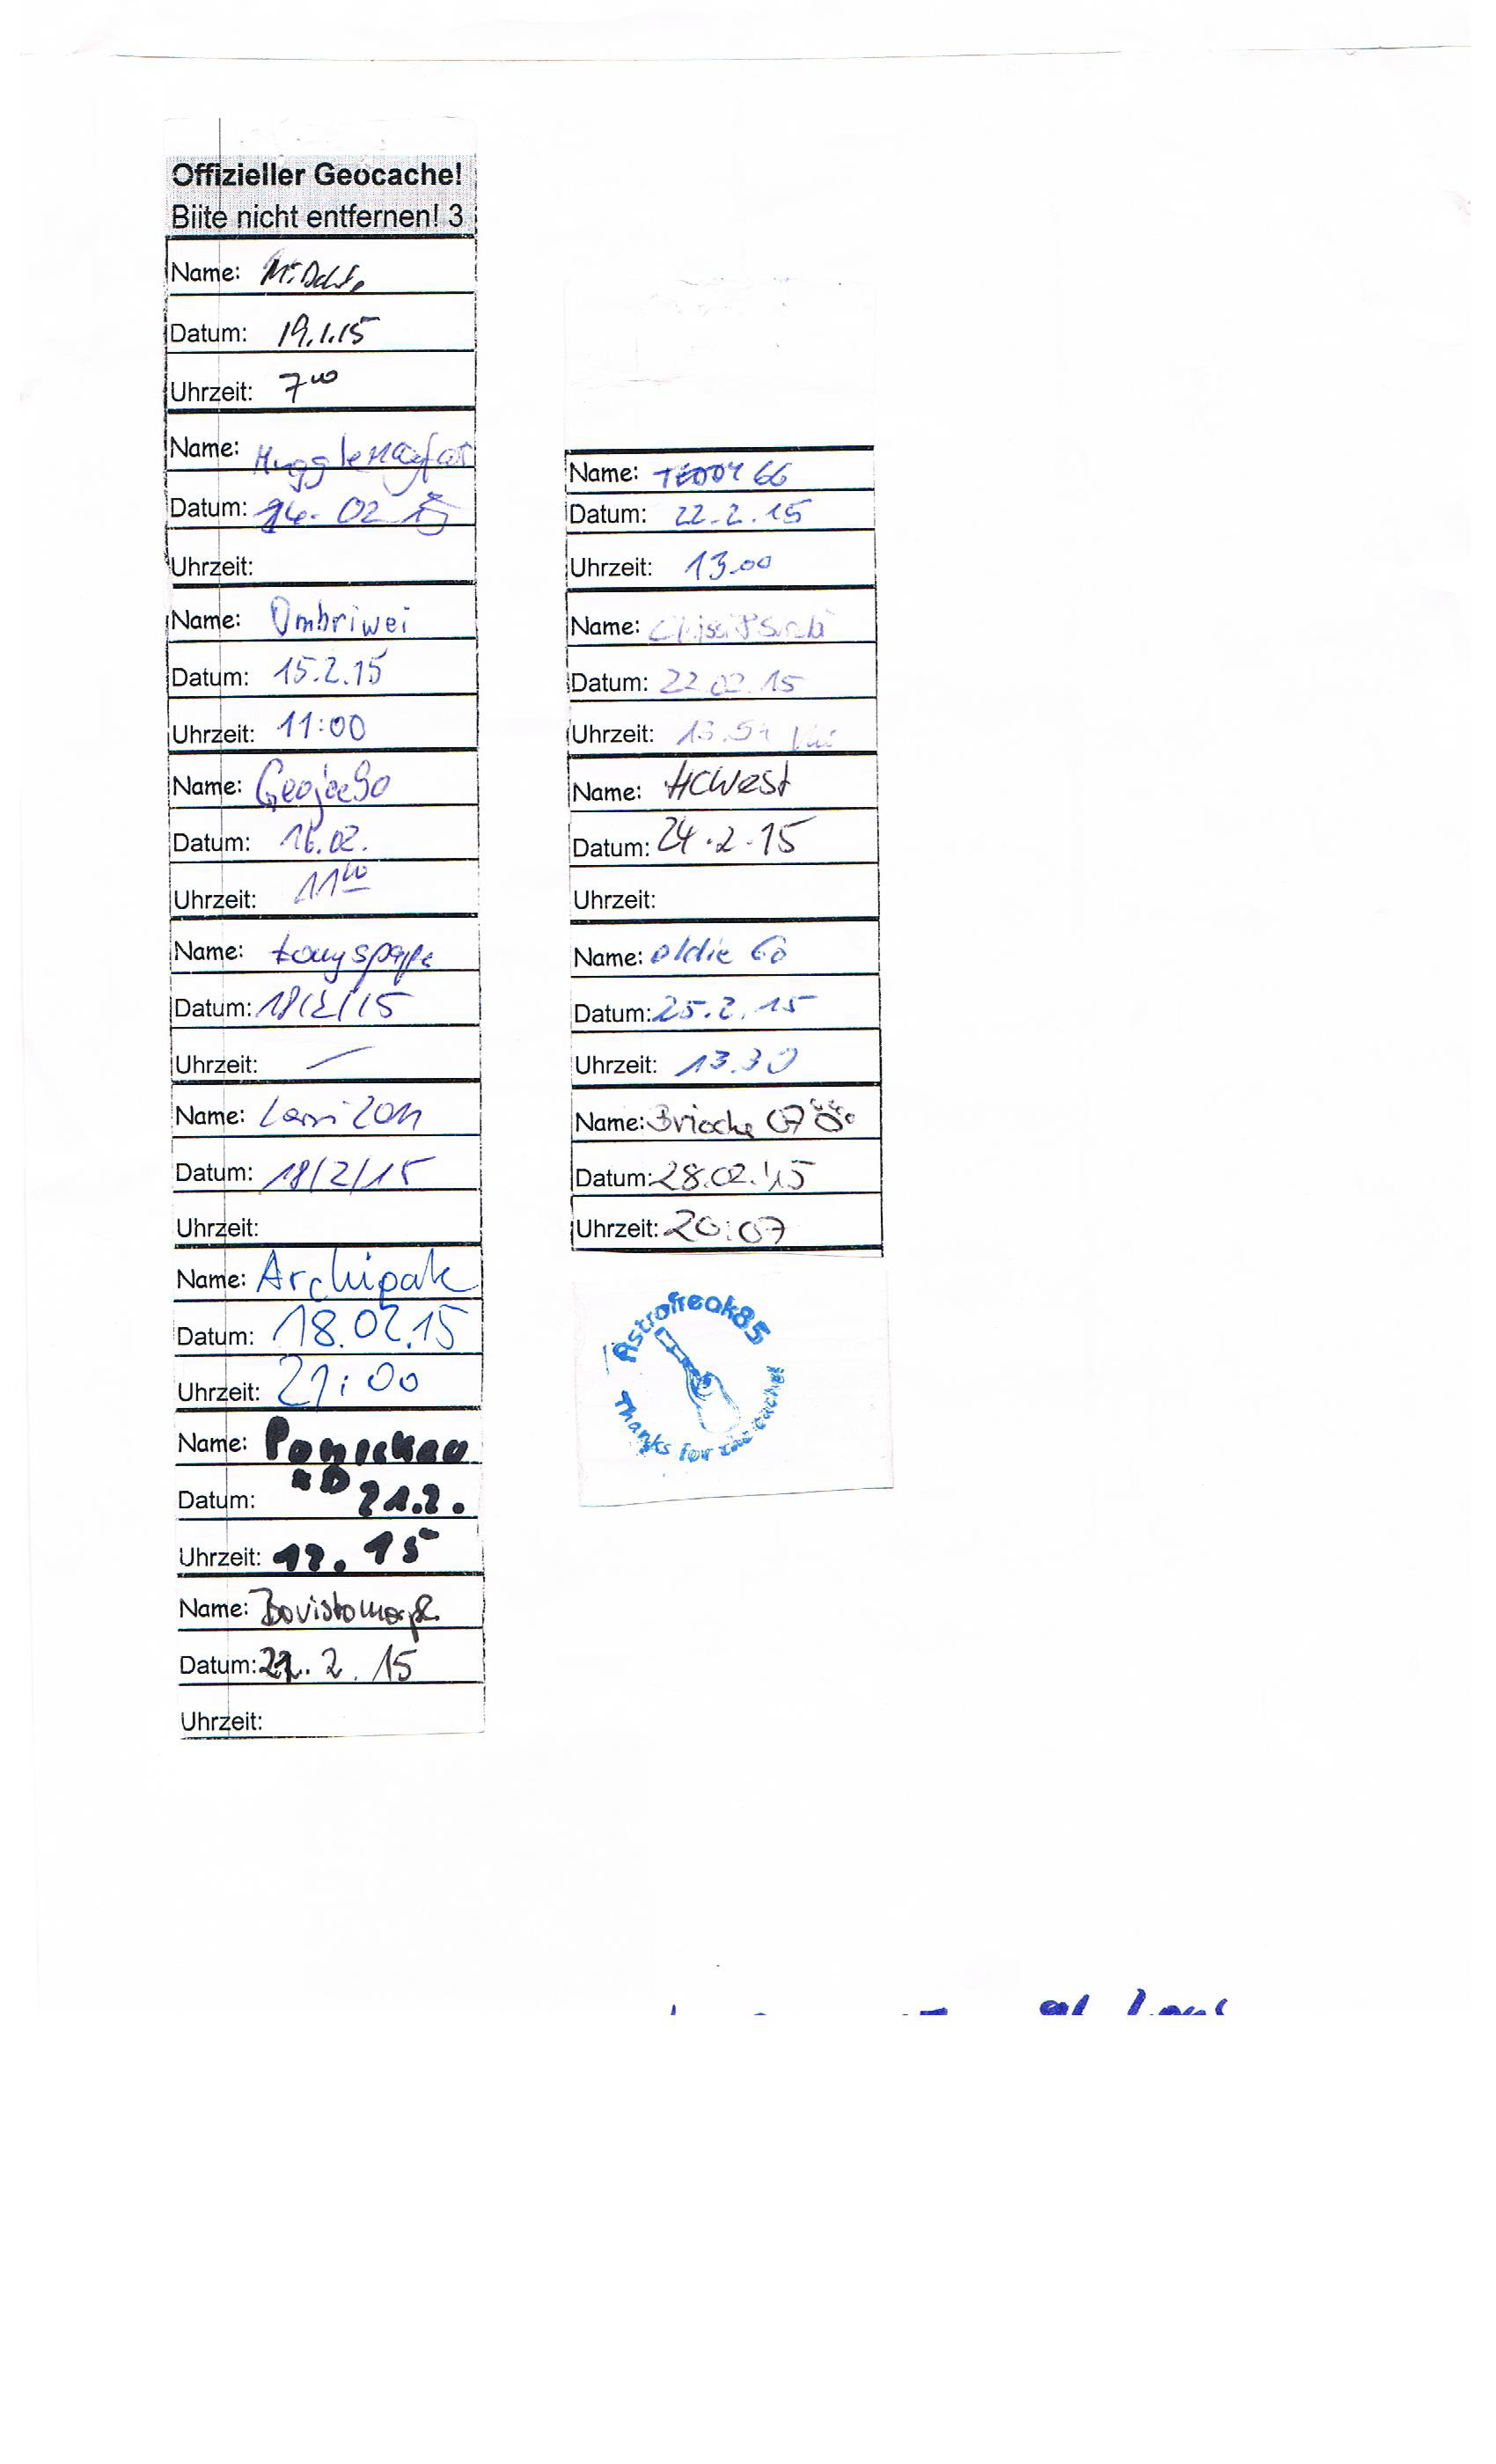 Offizieller Geocache!
Biite nicht entfernen! 3
Name:
Datum: 19.1.15
Uhrzeit: 7⁰⁰
Name:
Datum: 14.02 15
Uhrzeit:
Name: Ombriwei
Datum: 15.2.15
Uhrzeit: 11:00
Name: Geojee90
Datum: 16.02.
Uhrzeit: 11⁰⁰
Name:
Datum: 18/2/15
Uhrzeit: –
Name:
Datum: 18/2/15
Uhrzeit:
Name: Archipak
Datum: 18.02.15
Uhrzeit: 21:00
Name: Ponickau
Datum: 21.2.
Uhrzeit: 12.15
Name:
Datum: 22.2.15
Uhrzeit:
Name: TEDDY 66
Datum: 22.2.15
Uhrzeit: 13.00
Name:
Datum: 22.02.15
Uhrzeit:
Name: HCWest
Datum: 24.2.15
Uhrzeit:
Name: oldie 60
Datum: 25.2.15
Uhrzeit: 13.30
Name: Brioche 07
Datum: 28.02.15
Uhrzeit: 20:07
Astrofreak85
Thanks for the cache!